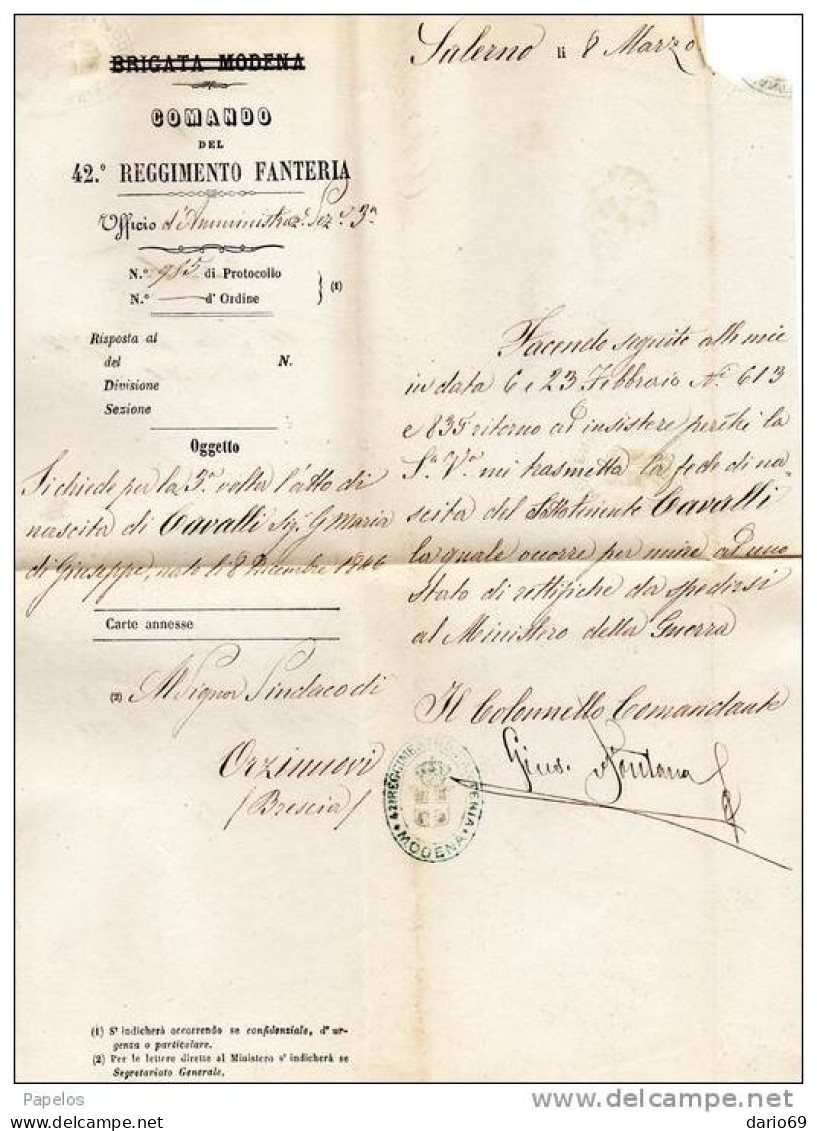 BRIGATA MODENA
COMANDO
DEL
42.º REGGIMENTO FANTERIA
Ufficio d'Amministraz.e Sez.e 3.a
N.º 985 di Protocollo
N.º — d'Ordine
(1)
Risposta al
del N.
Divisione
Sezione
Oggetto
Si chiede per la 3.a volta l'atto di
nascita di Cavalli Sig. G Maria
di Giuseppe, nato li 8 Dicembre 1846
Carte annesse
(2) Al Signor Sindaco di
Orzinuovi
(Brescia)
Salerno li 8 Marzo
Facendo seguito alle mie
in data 6 e 23 Febbraio N.i 613
e 835 ritorno ad insistere perchè la
S.a V.a mi trasmetta la fede di na=
scita del Sottotenente Cavalli
la quale occorre per unire ad uno
Stato di rettifiche da spedirsi
al Ministero della Guerra
Il Colonnello Comandante
Gius. Fontana
42º REGGIMENTO FANTERIA
MODENA
(1) S'indicherà occorrendo se confidenziale, d'ur-
genza o particolare.
(2) Per le lettere dirette al Ministero s'indicherà se
Segretariato Generale.
Papelos
delcampe.net
dario69